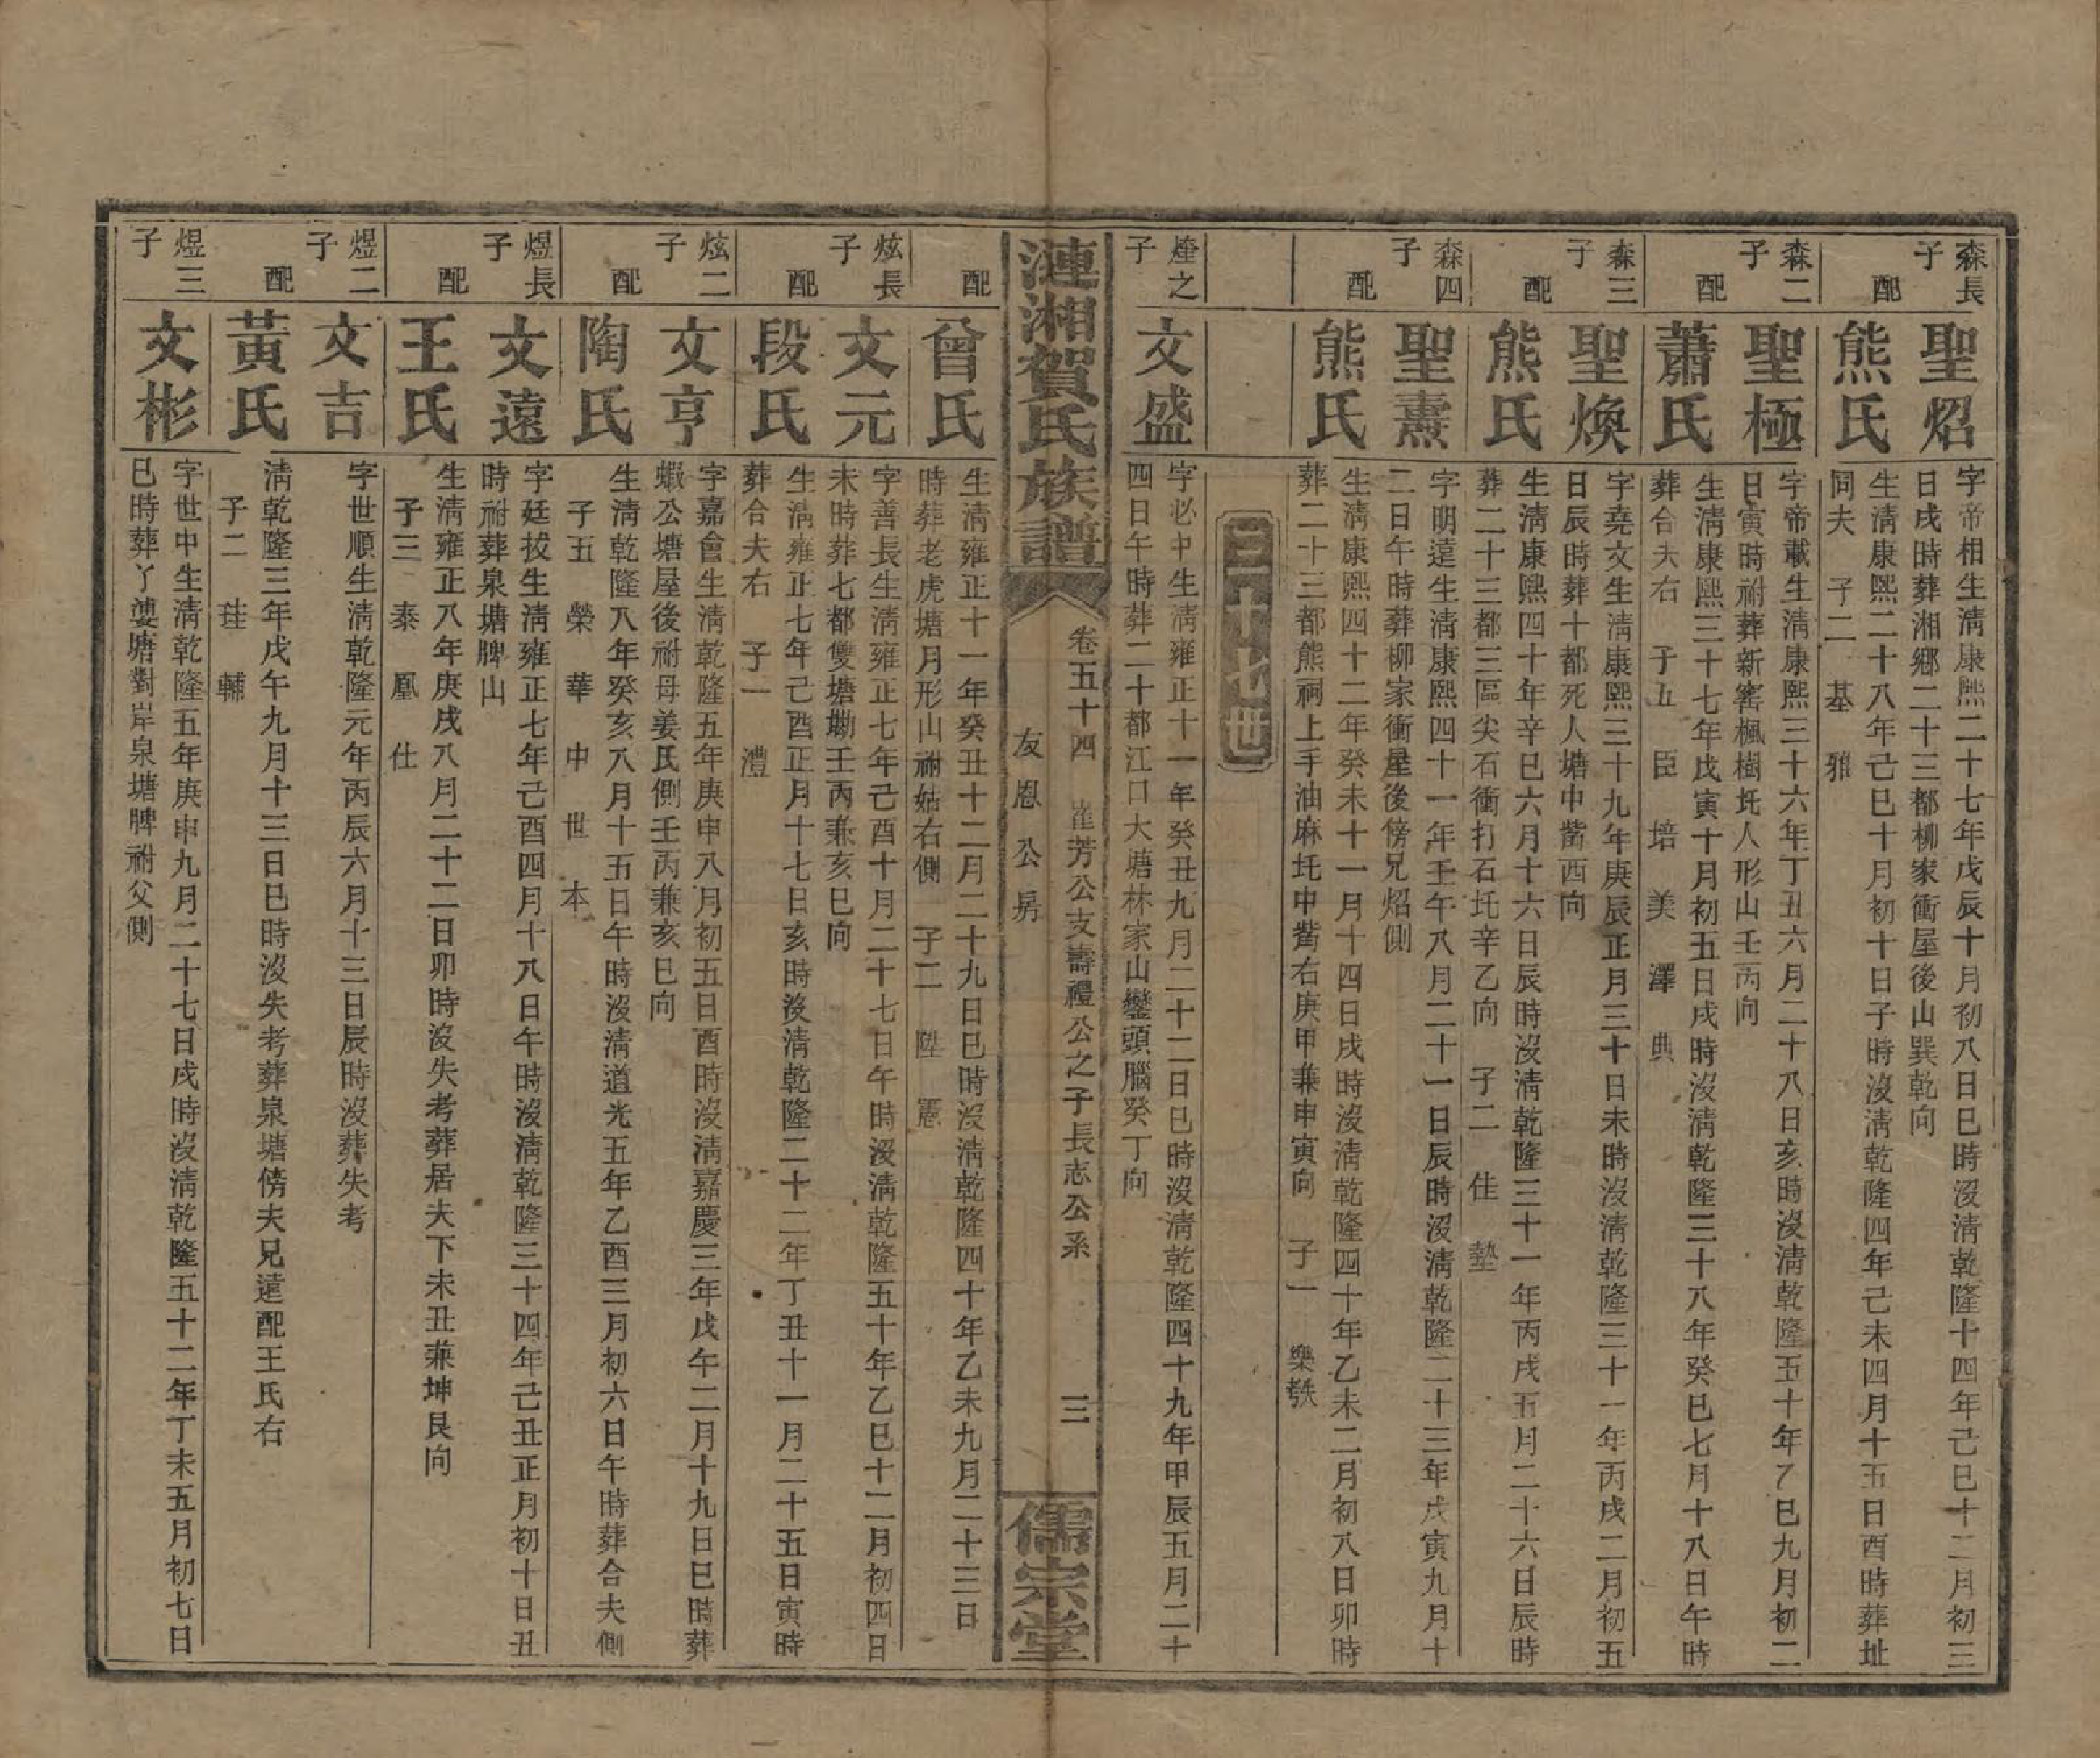 森長子
聖炤
字帝相生淸康熙二十七年戊辰十月初八日巳時沒淸乾隆十四年己巳十二月初三
日戌時葬湘鄕二十三都柳家衝屋後山巽乾向
配
熊氏
生淸康熙二十八年己巳十月初十日子時沒淸乾隆四年己未四月十五日酉時葬址
同夫 子二 基 雅
森二子
聖極
字帝載生淸康熙三十六年丁丑六月二十八日亥時沒淸乾隆五十年乙巳九月初二
日寅時祔葬新窰楓樹坉人形山壬丙向
配
蕭氏
生淸康熙三十七年戊寅十月初五日戌時沒淸乾隆三十八年癸巳七月十八日午時
葬合夫右 子五 臣 培 美 澤 典
森三子
聖煥
字堯文生淸康熙三十九年庚辰正月三十日未時沒淸乾隆三十一年丙戌二月初五
日辰時葬十都死人塘中嘴西向
配
熊氏
生淸康熙四十年辛巳六月十六日辰時沒淸乾隆三十一年丙戌五月二十六日辰時
葬二十三都三區尖石衝打石坉辛乙向 子二 佳 塾
森四子
聖燾
字明遠生淸康熙四十一年壬午八月二十一日辰時沒淸乾隆二十三年戊寅九月十
二日午時葬柳家衝屋後傍兄炤側
配
熊氏
生淸康熙四十二年癸未十一月十四日戌時沒淸乾隆四十年乙未二月初八日卯時
葬二十三都熊祠上手油麻坉中嘴右庚甲兼申寅向 子一 樂
世
煃之子
文盛
字必中生淸雍正十一年癸丑九月二十二日巳時沒淸乾隆四十九年甲辰五月二十
四日午時葬二十都江口大塘林家山鑾頭腦癸丁向
漣湘賀氏族譜
卷五十四 崔芳公支壽禮公之子長志公系
友恩公房
三
儒宗堂
配
曾氏
生淸雍正十一年癸丑十二月二十九日巳時沒淸乾隆四十年乙未九月二十三日
時葬老虎塘月形山祔姑右側 子二 陞 憲
炫長子
文元
字善長生淸雍正七年己酉十月二十七日午時沒淸乾隆五十年乙巳十二月初四日
未時葬七都雙塘壪壬丙兼亥巳向
配
段氏
生淸雍正七年己酉正月十七日亥時沒淸乾隆二十二年丁丑十一月二十五日寅時
葬合夫右 子一 澧
炫二子
文亨
字嘉會生淸乾隆五年庚申八月初五日酉時沒淸嘉慶三年戊午二月十九日巳時葬
蝦公塘屋後祔母姜氏側壬丙兼亥巳向
配
陶氏
生淸乾隆八年癸亥八月十五日午時沒淸道光五年乙酉三月初六日午時葬合夫側
子五 榮 華 中 世 本
煜長子
文遠
字廷拔生淸雍正七年己酉四月十八日午時沒淸乾隆三十四年己丑正月初十日丑
時祔葬泉塘脾山
配
王氏
生淸雍正八年庚戌八月二十二日卯時沒失考葬居夫下未丑兼坤艮向
子三 泰 凰 仕
煜二子
文吉
字世順生淸乾隆元年丙辰六月十三日辰時沒葬失考
配
黃氏
淸乾隆三年戊午九月十三日巳時沒失考葬泉塘傍夫兄遠配王氏右
子二 珪 輔
煜三子
文彬
字世中生淸乾隆五年庚申九月二十七日戌時沒淸乾隆五十二年丁未五月初七日
巳時葬丫塘對岸泉塘脾祔父側